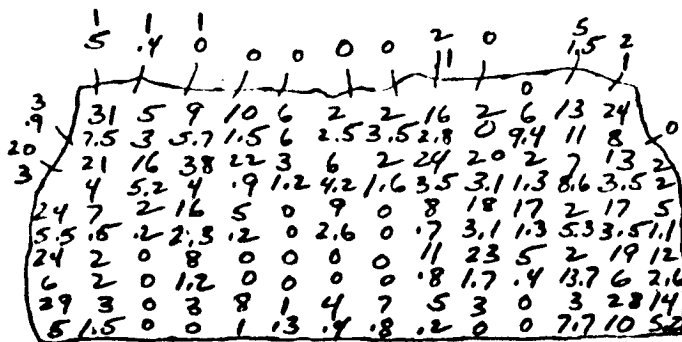 1 1 1 5
5 .4 0 0 0 0 0 2 0 1.5 2
11 1
0
3 31 5 9 10 6 2 2 16 2 6 13 24
.9 7.5 3 5.7 1.5 6 2.5 3.5 2.8 0 9.4 11 8 0
20 21 16 38 22 3 6 2 24 20 2 7 13 2
3 4 5.2 4 .9 1.2 4.2 1.6 3.5 3.1 1.3 8.6 3.5 2
24 7 2 16 5 0 9 0 8 18 17 2 17 5
5.5 .5 .2 2.3 .2 0 2.6 0 .7 3.1 1.3 5.3 3.5 1.1
24 2 0 8 0 0 0 0 11 23 5 2 19 12
6 2 0 1.2 0 0 0 0 .8 1.7 .4 13.7 6 2.6
29 3 0 3 8 1 4 7 5 3 0 3 28 14
8 1.5 0 0 1 .3 .4 .8 .2 0 0 7.7 10 5.2